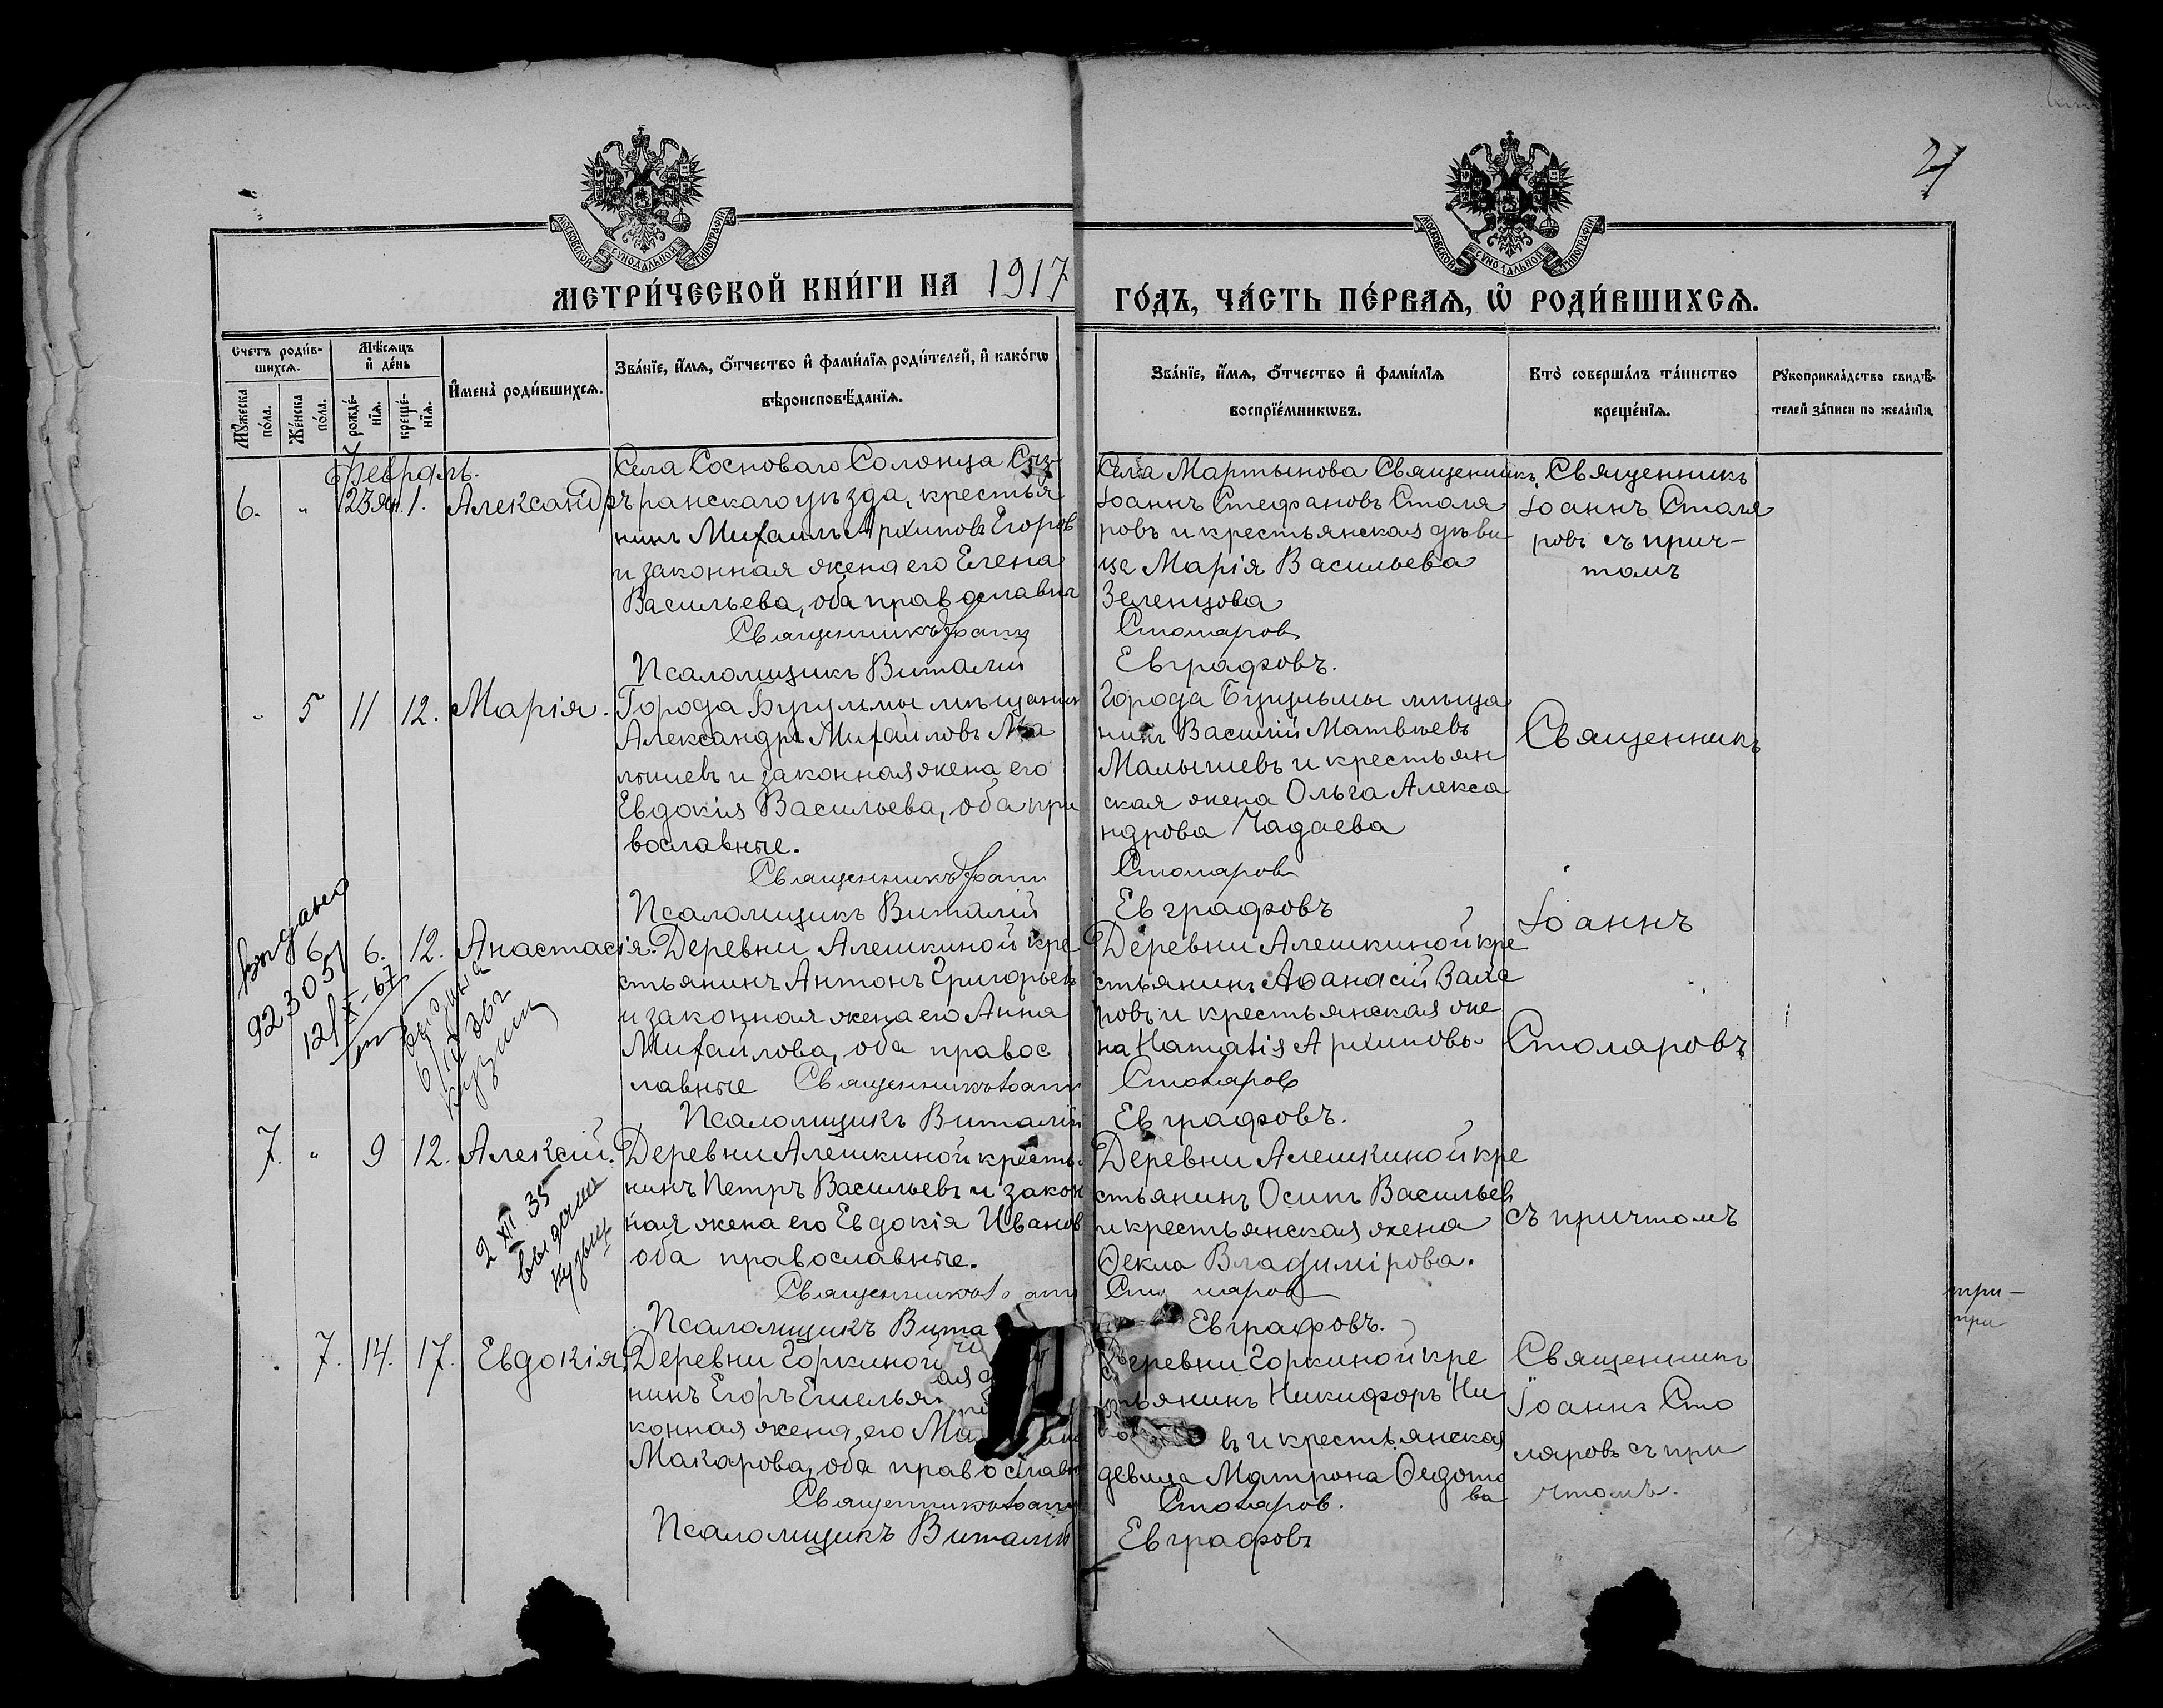 21
МОСКОВСКОЙ СѴНОДАЛЬНОЙ ТИПОГРАФІИ
МОСКОВСКОЙ СѴНОДАЛЬНОЙ ТИПОГРАФІИ
МЕТРИ́ЧЕСКОЙ КНИ́ГИ НА 1917
ГО́ДЪ, ЧА́СТЬ ПЕ́РВАѦ, Ѡ҆ РОДИ́ВШИХСѦ.
Счетъ роди́в-
шихсѧ.
Мѣ́сѧцъ
и҆ де́нь
Мꙋ́жеска
по́ла.
Же́нска
по́ла.
рожде́-
нїѧ.
креще́-
нїѧ.
И҆мена̀ роди́вшихсѧ.
Зва́нїе, и҆́мѧ, ѻ҆́тчество и҆ фами́лїѧ роди́телей, и҆ како́гѡ
вѣроисповѣ́данїѧ.
Зва́нїе, и҆́мѧ, ѻ҆́тчество и҆ фами́лїѧ
воспрїе́мникѡвъ.
Кто̀ соверша́лъ та́инство
креще́нїѧ.
Рꙋкоприкла́дство свидѣ́-
телей за́писи по жела́нїю
Февраль.
6. " 23 Ян. 1. Александръ
Села Сосноваго Солонца Сыз-
ранскаго уѣзда, крестья
нинъ Михаилъ Архиповъ Егоров
и законная жена его Елена
Васильева, оба православн
Священникъ Іоанн
Псаломщикъ Виталій
Села Мартынова Священникъ
Іоаннъ Стефановъ Столя
ровъ и крестьянская дѣви
ца Марія Васильева
Зеленцова
Столяров
Евграфовъ.
Священникъ
Іоаннъ Столя
ровъ съ прич-
томъ
" 5 11 12. Марія.
Города Бугульмы мѣщанин
Александръ Михайловъ Ма
лышевъ и законная жена его
Евдокія Васильева, оба пра
вославные.
Священникъ Іоанн
Псаломщикъ Виталій
Города Бугульмы мѣща
нинъ Василій Матвѣевъ
Малышевъ и крестьян
ская жена Ольга Алекса
ндрова Чадаева
Столяров
Евграфовъ
Священникъ
Іоаннъ
Столяровъ
съ причтомъ
6 6. 12. Анастасія.
Выдано
923051
12/X-67
Деревни Алешкиной кре
стьянинъ Антонъ Григорьевъ
и законная жена его Анна
Михайлова, оба правос
лавные Священникъ Іоанн
Псаломщикъ Виталій
Деревни Алешкиной кре
стьянинъ Аѳанасій
ровъ и крестьянская же
на Наталія Архипова.
Столяров
Евграфовъ.
7. " 9 12. Алексій.
2 XII 35
выдана
Деревни Алешкиной кресть
нинъ Петръ Васильевъ и закон
ная жена его Евдокія Иванов
оба православные.
Священникъ Іоанн
Псаломщикъ Вита
Деревни Алешкиной кре
стьянинъ Осипъ Васильев
и крестьянская жена
Ѳекла Владимірова.
Столяров
Евграфовъ.
7. 14. 17. Евдокія
Деревни Горкиной
нинъ Егоръ Емельян
конная жена его
Макарова, оба православн
Священникъ Іоанн
Псаломщикъ Виталій
Деревни Горкиной кре
стьянинъ Никифоръ Ни
въ и крестьянская
девица Матрона Ѳедото
ва
Столяров.
Евграфовъ
Священникъ
Іоаннъ Сто
ляровъ съ при
чтомъ.